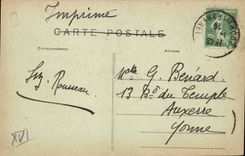 Imprimé
CARTE POSTALE
Correspondance
Adresse
G. Bénard
13 Bd du Temple
Auxerre
Yonne
Rousseau
XVI